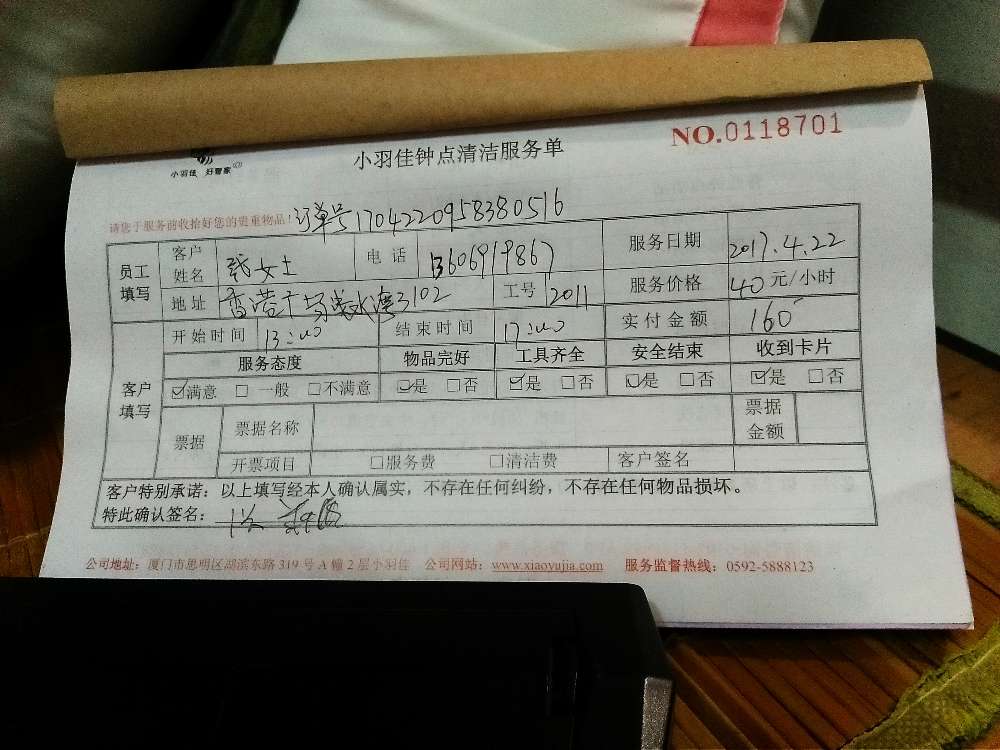 小羽佳 好管家
小羽佳钟点清洁服务单
NO.0118701
请您于服务前收拾好您的贵重物品！订单号1704220958380516
员工填写 客户姓名 张女士 电话 13606919867 服务日期 2017.4.22
地址 3102 工号 2011 服务价格 40元/小时
客户填写 开始时间 13:00 结束时间 17:00 实付金额 160
服务态度 物品完好 工具齐全 安全结束 收到卡片
☑满意 □一般 □不满意 ☑是 □否 ☑是 □否 ☑是 □否 ☑是 □否
票据 票据名称 票据金额
开票项目 □服务费 □清洁费 客户签名
客户特别承诺：以上填写经本人确认属实，不存在任何纠纷，不存在任何物品损坏。
特此确认签名：
公司地址：厦门市思明区湖滨东路319号A幢2层小羽佳 公司网站：www.xiaoyujia.com 服务监督热线：0592-5888123